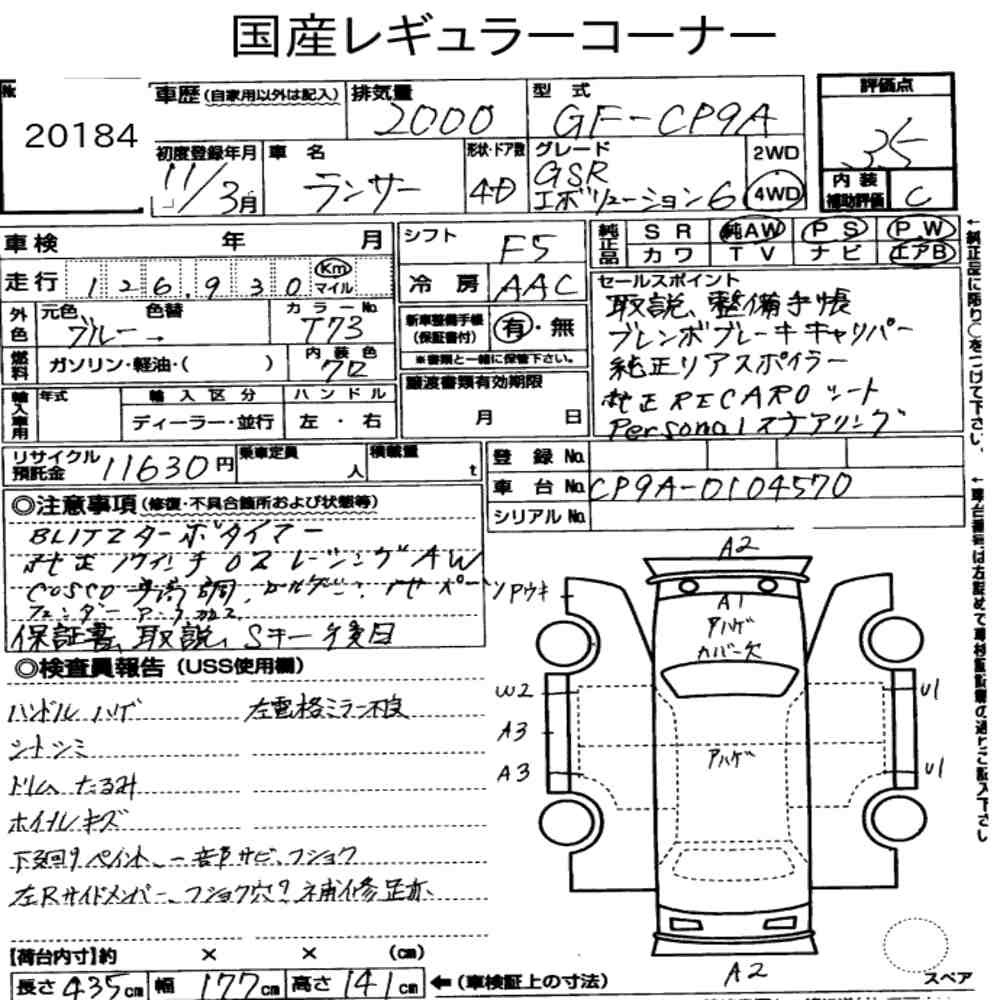 国産レギュラーコーナー
№ 20184
車歴 (自家用以外は記入)
排気量 2000
型式 GF-CP9A
評価点 3.5
初度登録年月 11/3月
車名 ランサー
形状・ドア数 4D
グレード GSR エボリューション6
2WD
4WD
内装補助評価 C
車検 年 月
シフト F5
純正品 SR 純AW PS PW
カワ TV ナビ エアB
走行 126,930 Km マイル
冷房 AAC
外色 元色 ブルー 色替 → カラーNo. T73
新車整備手帳 (保証書付) 有・無
※書類と一緒に保管下さい。
燃料 ガソリン・軽油・( )
内装色 クロ
セールスポイント
取説、整備手帳
ブレンボブレーキキャリパー
純正リアスポイラー
純正RECAROシート
Personalステアリング
輸入車用 年式 輸入区分 ディーラー・並行 ハンドル 左・右
譲渡書類有効期限 月 日
リサイクル預託金 11630円
乗車定員 人
積載量 t
登録No.
車台No. CP9A-0104570
シリアルNo.
←純正品に限り○をつけて下さい。
←車台番号は右詰めで車検証記載の通りご記入下さい
◎注意事項 (修復・不具合箇所および状態等)
BLITZターボタイマー
純正17インチOZレーシングAW
COSCO車高調
保証書、取説、Sキー後日
◎検査員報告 (USS使用欄)
ハンドルハゲ 左電格ミラー不良
シートシミ
ドリムたるみ
ホイールキズ
下廻りペイント、一部サビ、フショク
左Rサイドメンバー、フショク穴?補修跡
A2
A1
アハゲ
カバー欠
ソアウキ
W2
A3
A3
アハゲ
U1
U1
A2
スペア
【荷台内寸】約 × × (cm)
長さ 435cm 幅 177cm 高さ 141cm ←(車検証上の寸法)